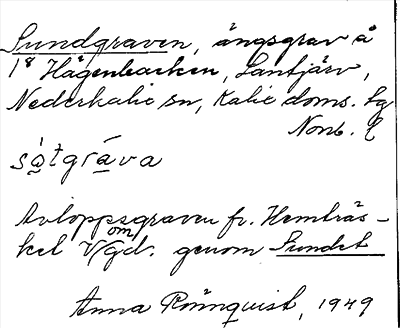 Sundgraven, ängsgrav å
1⁸ Hägenbacken, Lantjärv,
Nederkalix sn, Kalix doms. lg
Norrb. l
sátgráva
Avloppsgraven fr. Hemträs-
ket V om gd. genom Sundet
Anna Rönnquist, 1949